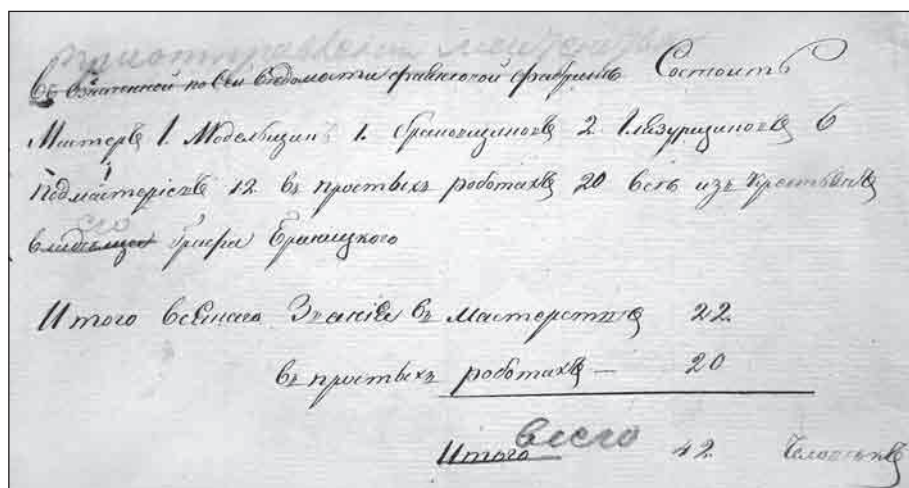 въ означенной по сей ведомости фаянсовой фабрикѣ Состоитъ
Мастеръ 1. Модельщикъ 1. 2 6
подмастерьевъ 12 въ простыхъ роботахъ 20 всѣ изъ крестьянъ
его
владельца Графа Браницкого
Итого всякаго Званія въ мастерствѣ 22
въ простыхъ роботахъ — 20
всего
Итого 42 человѣкъ